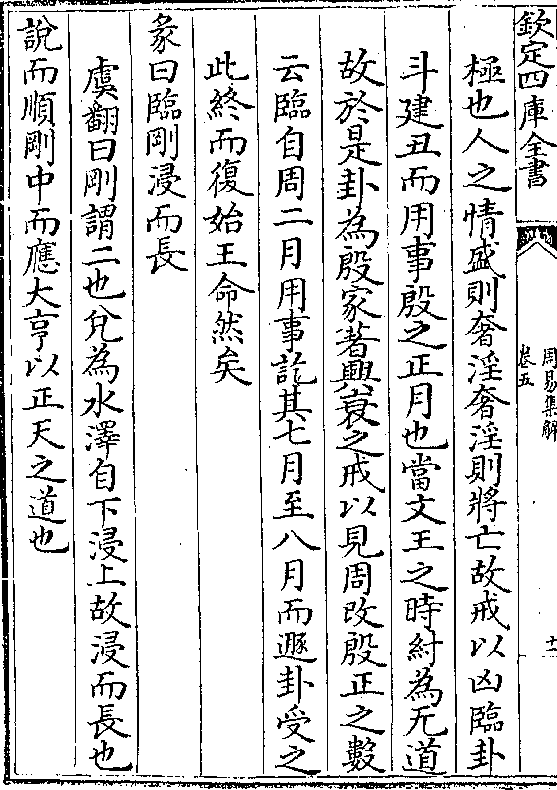 欽定四庫全書
周易集解
卷五
十二
極也人之情盛則奢淫奢淫則將亡故戒以凶臨卦
斗建丑而用事殷之正月也當文王之時紂為无道
故於是卦為殷家著興衰之戒以見周改殷正之數
云臨自周二月用事訖其七月至八月而遯卦受之
此終而復始王命然矣
彖曰臨剛浸而長
虞翻曰剛謂二也兊為水澤自下浸上故浸而長也
說而順剛中而應大亨以正天之道也